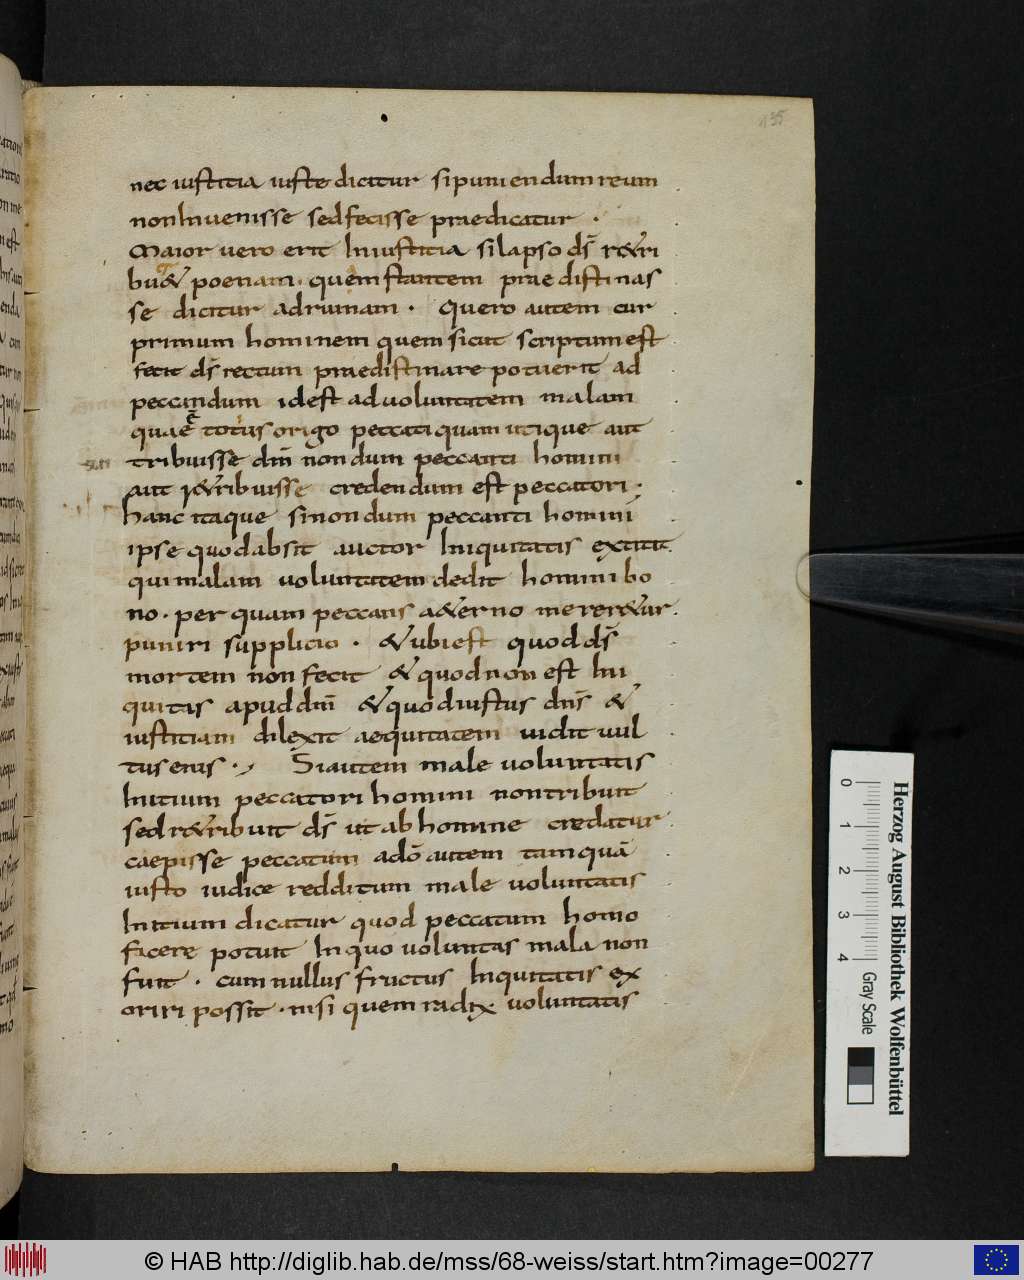 135
nec iustitia iuste dicitur si puniendum reum
non invenisse sed fecisse praedicatur ·
Maior vero erit Iniustitia si lapso dś r&ri
bu& poenam · quem stantem praedistinas
se dicitur ad ruinam · Quero autem cur
primum hominem quem sicut scriptum est
fecit dś rectum praedistinare potuerit ad
peccandum idest ad uoluntatem malam
quae ē totius origo peccati quam utique aut
tribuisse dm̄ nondum peccanti homini
aut r&ribuisse credendum est peccatori ·
hanc itaque si nondum peccanti homini
ipse quod absit auctor Iniquitatis extitit
qui malam voluntatem dedit homini bo
no · per quam peccans a&erno merer&ur
puniri supplicio · & ubi est quod dś
mortem non fecit & quod non est Ini
quitas apud dm̄ & quod iustus dnś &
iustitiam dilexit aequitatem uidit uul
tus eius · Si autem male uoluntatis
Initium peccatori homini non tribuit
sed r&ribuit dś ut ab homine credatur
caepisse peccatum a dō autem tamquā
iusto iudice redditum male uoluntatis
Initium dicatur quod peccatum homo
facere potuit In quo uoluntas mala non
fuit · cum nullus fructus Inquitatis ex
oriri possit · nisi quem radix uoluntatis
0 1 2 3 4
Gray Scale
Herzog August Bibliothek Wolfenbüttel
© HAB http://diglib.hab.de/mss/68-weiss/start.htm?image=00277